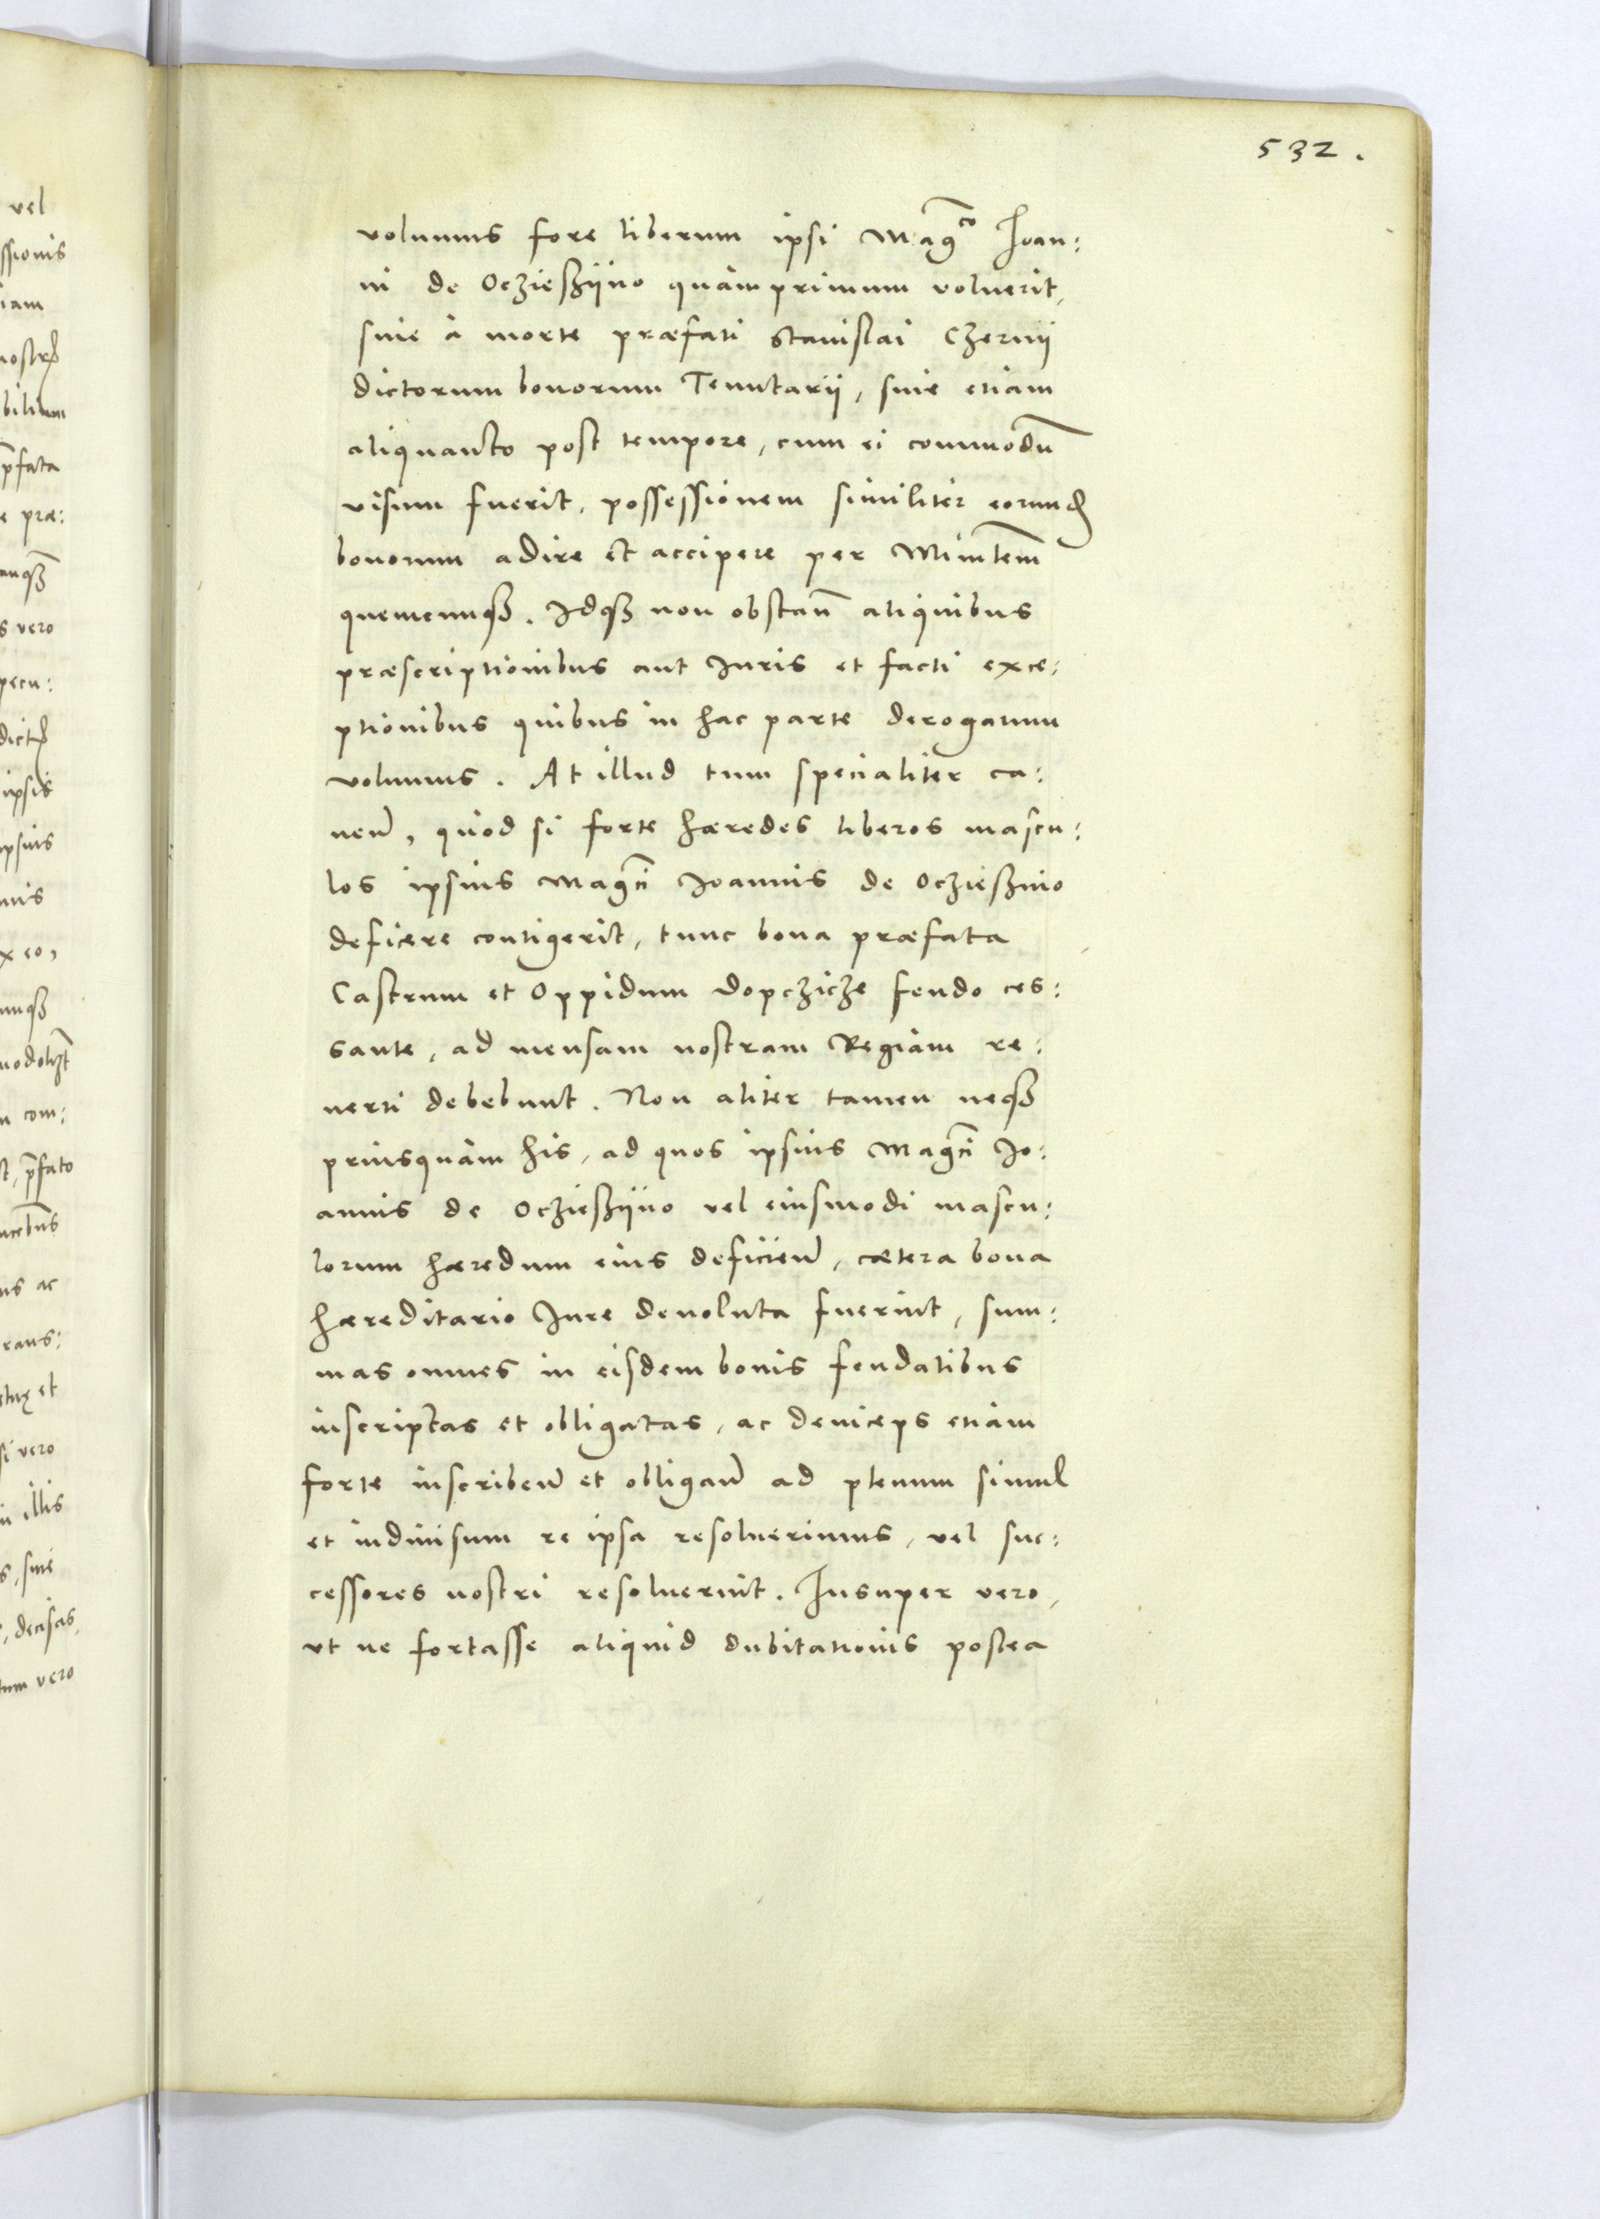 532.
volumus fore liberum ipsi Mag̃co Joan:
ni de Oczieszijno quàm primum voluerit,
siue à morte præfati Stanislai Czernij
dictorum bonorum Tenutarij, siue etiam
aliquanto post tempore, cum ei commodũ
visum fuerit, possessionem similiter eorund
bonorum adire et accipere per Minrẽm
quemcunqȝ. Idqȝ non obstañ aliquibus
præscriptionibus aut Juris et facti exce:
ptionibus quibus in hac parte derogatum
volumus. At illud tum specialiter ca:
ueñ, quòd si forte hæredes liberos mascu:
los ipsius Mag̃ci Joannis de Oczieszino
deficere contigerit, tunc bona præfata
Castrum et Oppidum Dopczicze feudo ces:
sante, ad mensam nostram Regiam re:
uerti debebunt. Non aliter tamen neqȝ
priusquàm his, ad quos ipsius Mag̃ci Jo:
annis de Oczieszijno vel eiusmodi mascu:
lorum hæredum eius deficieñ, cætera bona
hæreditario Jure deuoluta fuerint, sum:
mas omnes in eisdem bonis feudalibus
inscriptas et obligatas, ac deinceps etiam
forte inscribeñ et obligañ ad plenum simul
et indiuisum re ipsa resoluerimus, vel suc:
cessores nostri resoluerint. Insuper vero,
vt ne fortasse aliquid dubitationis postea
vel
ssionis
iam
bilium
p̃fata
præ:
vero
pecu:
ipsis
ipsius
x eo,
com:
p̃fato
ac
rans:
et
si vero
illis
siue
decisas,
vero